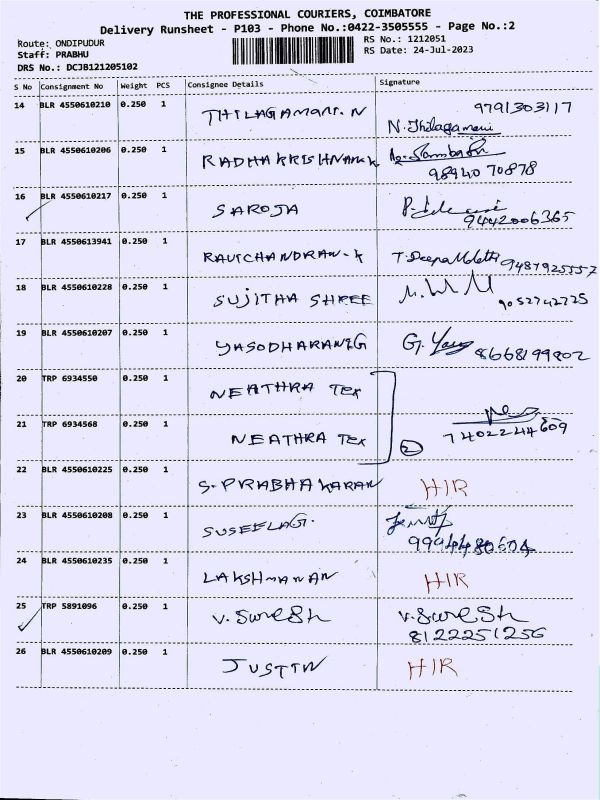 THE PROFESSIONAL COURIERS, COIMBATORE
Delivery Runsheet - P103 - Phone No.:0422-3505555 - Page No.:2
Route: ONDIPUDUR
RS No.: 1212051
Staff: PRABHU
RS Date: 24-Jul-2023
DRS No.: DCJB121205102
S No Consignment No Weight PCS Consignee Details Signature
14 BLR 4550610210 0.250 1 THILAGAMANI.N 9791303117
N.Thilagamani
15 BLR 4550610206 0.250 1 RADHAKRISHNAN.K
98940 70878
16 BLR 4550610217 0.250 1 SAROJA
9442006365
17 BLR 4550613941 0.250 1 RAVICHANDRAN-K 9487925557
18 BLR 4550610228 0.250 1 SUJITHA SHREE
9052742725
19 BLR 4550610207 0.250 1 YASODHARANI G 8668199802
20 TRP 6934550 0.250 1 NEATHRA Tex
21 TRP 6934568 0.250 1 NEATHRA Tex 2 7402244609
22 BLR 4550610225 0.250 1 S.PRABHAKARAN HIR
23 BLR 4550610208 0.250 1 SUSEELAG.
9994480604
24 BLR 4550610235 0.250 1 LAKSHMANAN HIR
25 TRP 5891096 0.250 1 V.SureSh V.SureSh
8122251256
26 BLR 4550610209 0.250 1 JUSTIN HIR